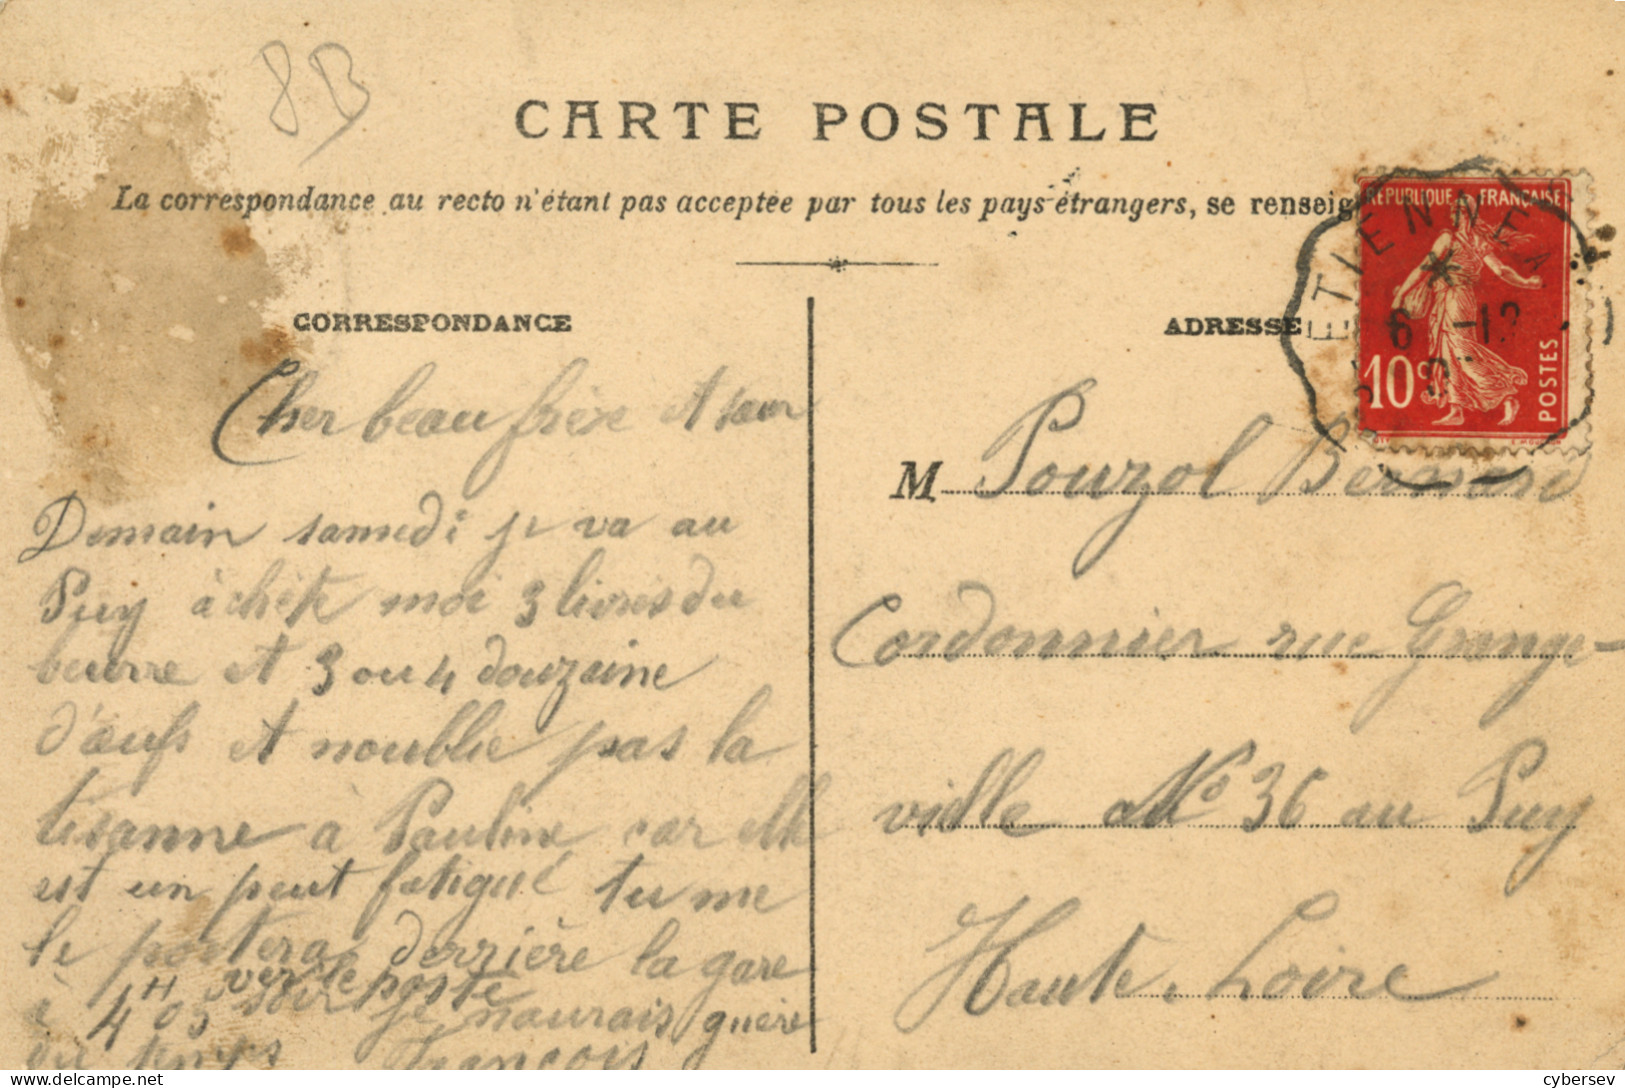 8B
CARTE POSTALE
La correspondance au recto n'étant pas acceptée par tous les pays étrangers, se renseig
RÉPUBLIQUE FRANÇAISE
ETIENNE
6 -12
10c
POSTES
CORRESPONDANCE
Cher beau frère et sœur
Demain samedi je va au
Puy achète moi 3 livres du
beurre et 3 ou 4 douzaine
d'œufs et noublie pas la
tisanne à Pauline car elle
est un peut fatigué tu me
le portera derrière la gare
vers le poste
à 4H05 soir je naurais guère
du temps François
ADRESSE
M Pouzol Bernard
Cordonnier rue Grange-
ville No 36 au Puy
Haute-Loire
www.delcampe.net
cybersev